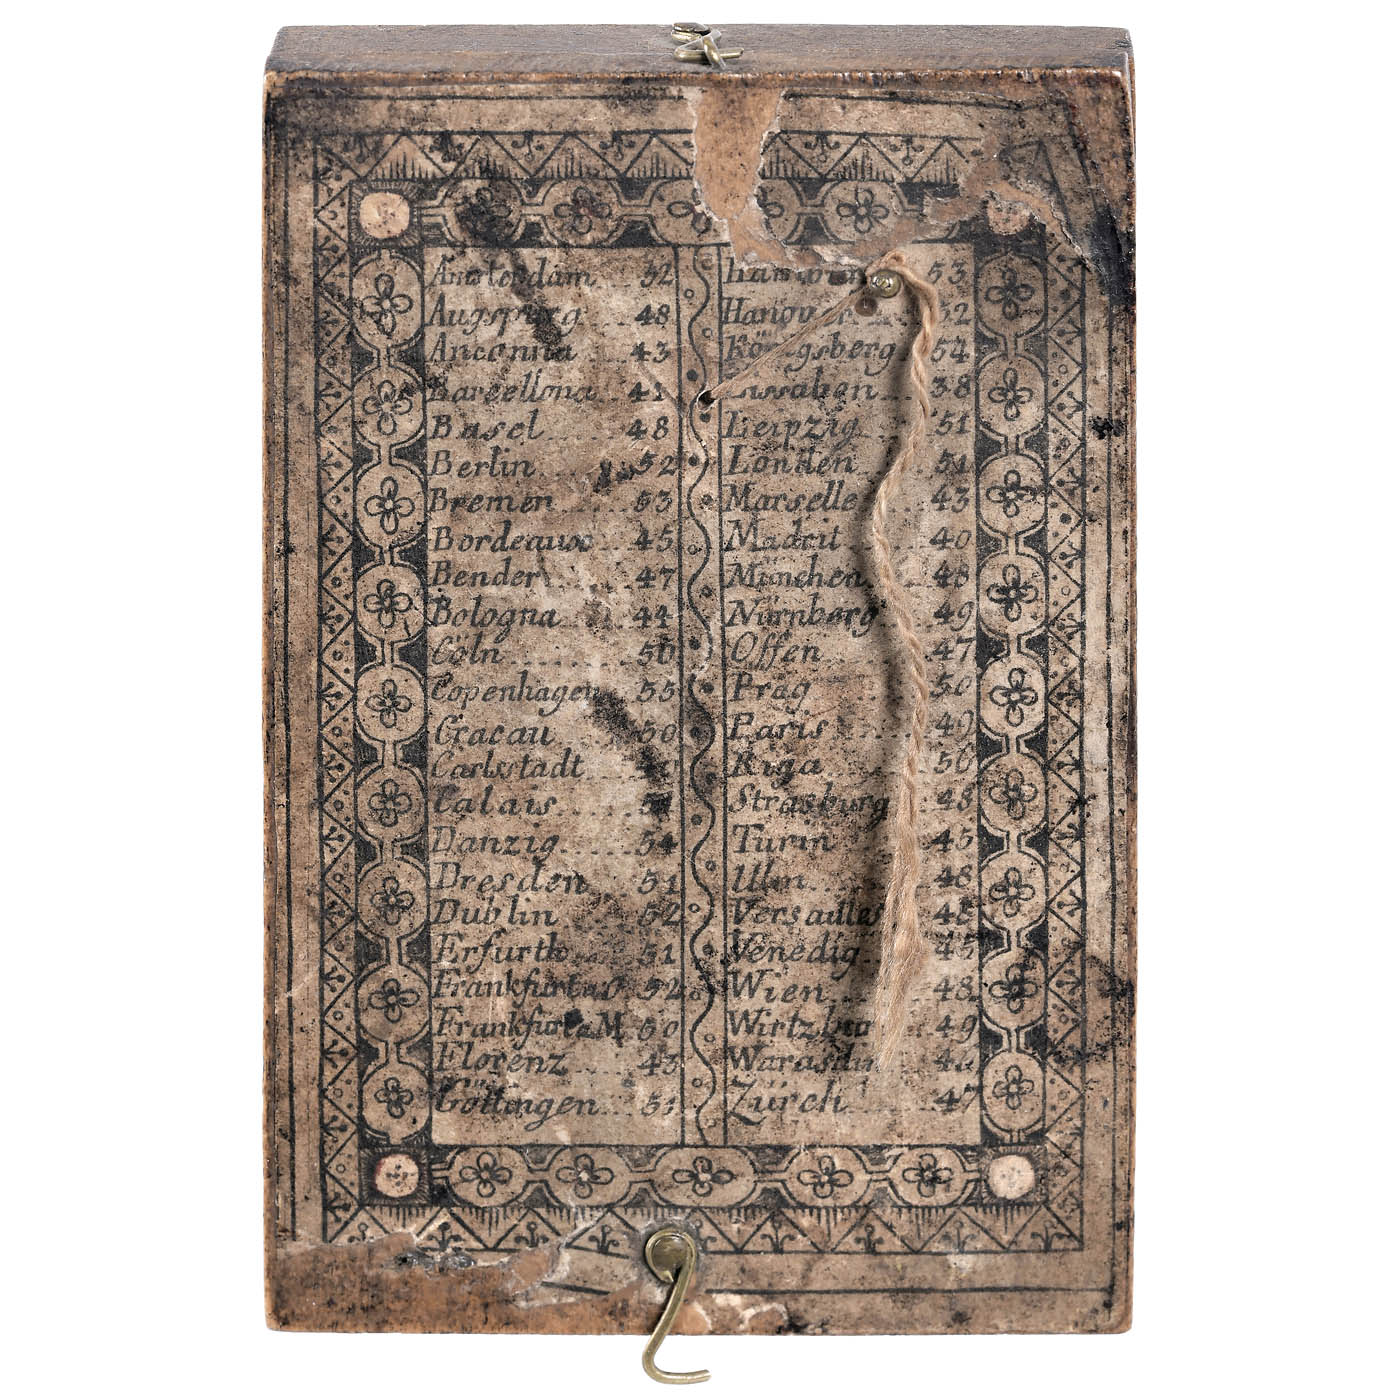 Amsterdam .. 52
Augspurg .. 48
Anconna .. 43
Barcellona 41
Basel .... 48
Berlin .... 52
Bremen ... 53
Bordeaux .. 45
Bender .... 47
Bologna ... 44
Cöln ....... 50
Copenhagen 55
Cracau .... 50
Carlsstadt
Calais .... 51
Danzig ..... 54
Dresden ... 51
Dublin .... 52
Erfurth ... 51
Frankfurt a O 52
Frankfurt a M 50
Florenz ... 43
Göttingen .. 51
53
Hanover .. 52
Königsberg 54
Lissabon .. 38
Leipzig ... 51
Londen ... 51
Marselle .. 43
Madrit ... 40
München .. 48
Nürnberg .. 49
Offen ..... 47
Prag ..... 50
Paris .... 49
Riga ..... 56
Strasburg .. 48
Turin .... 45
Ulm ...... 48
Versailles 48
Venedig ... 45
Wien .... 48
49
Zürch .... 47